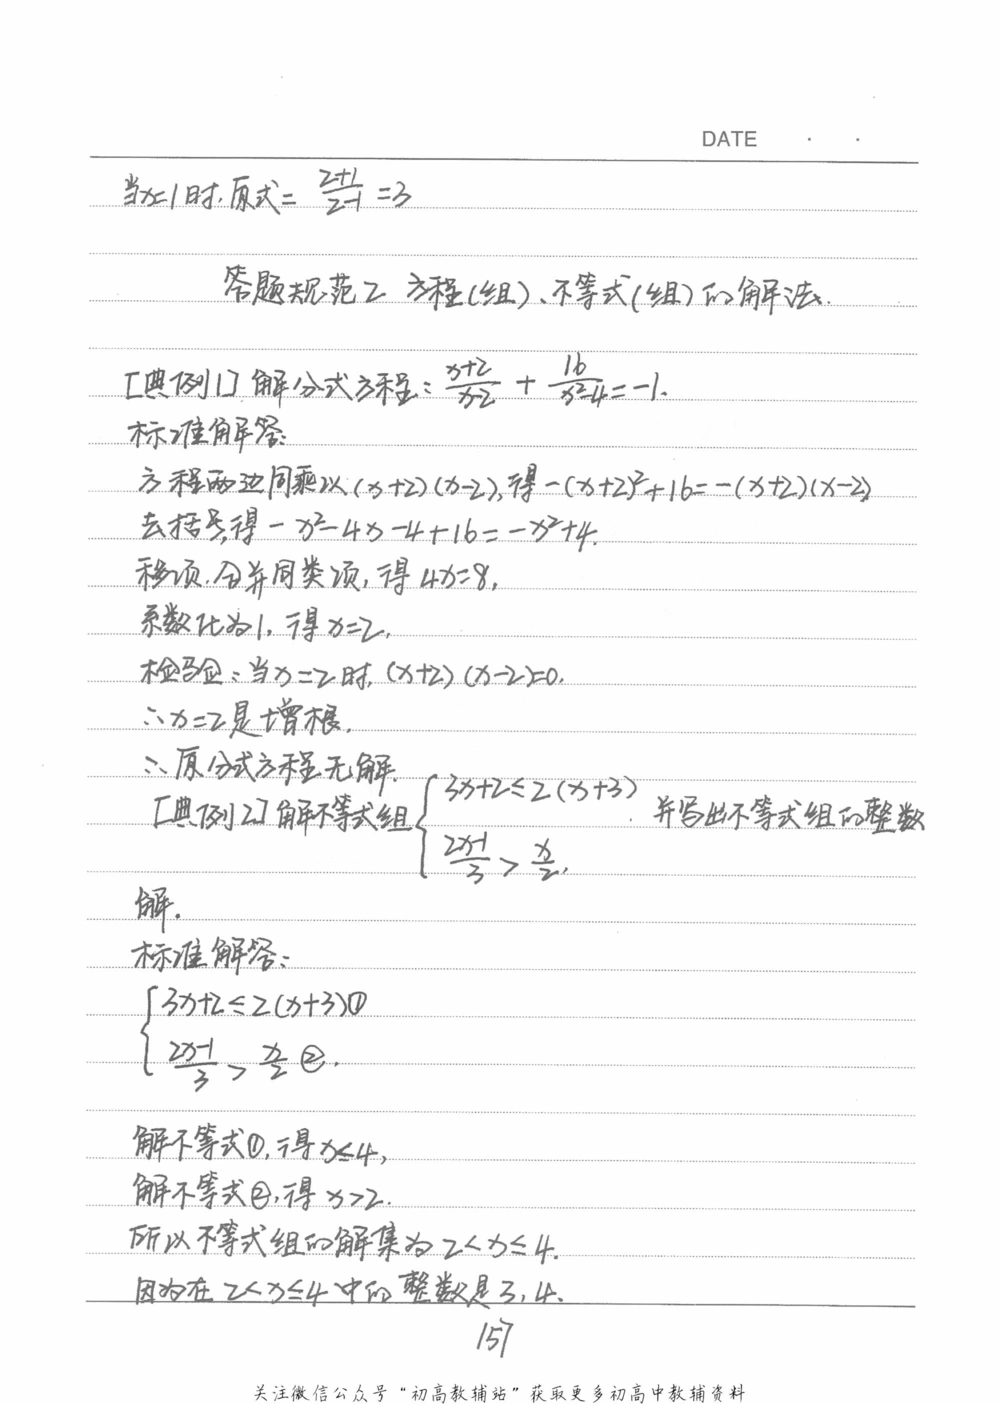 DATE · ·
当x=1时,原式= \frac{2+1}{2-1} =3
答题规范2 方程(组)、不等式(组)的解法.
[典例1]解分式方程: \frac{x+2}{x-2} + \frac{16}{x^2-4} =-1.
标准解答:
方程两边同乘以(x+2)(x-2),得-(x+2)²+16=-(x+2)(x-2)
去括号,得-x²-4x-4+16=-x²+4.
移项.合并同类项,得4x=8,
系数化为1,得x=2,
检验:当x=2时,(x+2)(x-2)=0.
∴x=2是增根.
∴原分式方程无解.
[典例2]解不等式组 { 3x+2≤2(x+3) \frac{2x-1}{3} > \frac{x}{2}, . 并写出不等式组的整数
解.
标准解答:
{ 3x+2≤2(x+3)①
\frac{2x-1}{3} > \frac{x}{2} ②.
解不等式①,得x≤4,
解不等式②,得x>2.
所以不等式组的解集为2<x≤4.
因为在2<x≤4中的整数是3,4.
157
关注微信公众号“初高教辅站”获取更多初高中教辅资料